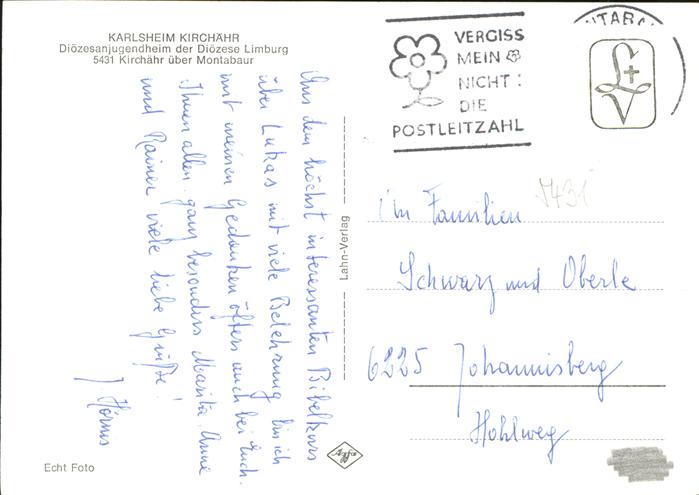 KARLSHEIM KIRCHÄHR
Diözesanjugendheim der Diözese Limburg
5431 Kirchähr über Montabaur
Aus dem höchst interessanten Bibelkurs
über Lukas mit viele Belehrung bin ich
mit meinen Gedanken öfters auch bei Euch.
Ihnen allen, ganz besonders Marita, Anne
und Rainer viele liebe Grüße!
J.
Echt Foto
Lahn-Verlag
VERGISS
MEIN
NICHT:
DIE
POSTLEITZAHL
NTABA
5431
Familien
Schwarz und Oberle
6225 Johannisberg
Hohlweg